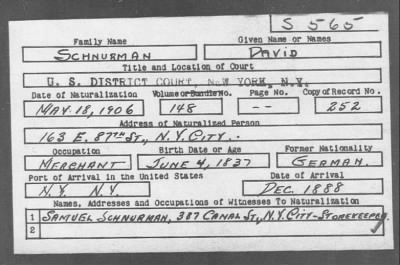 S 565
Family Name Given Name or Names
SCHNURMAN DAVID
Title and Location of Court
U. S. DISTRICT COURT, NEW YORK, N.Y.
Date of Naturalization Volume or Bundle No. Page No. Copy of Record No.
MAY 18, 1906 148 -- 252
Address of Naturalized Person
163 E. 87TH ST., N.Y. CITY.
Occupation Birth Date or Age Former Nationality
MERCHANT JUNE 4, 1837 GERMAN.
Port of Arrival in the United States Date of Arrival
N.Y. N.Y. DEC. 1888
Names, Addresses and Occupations of Witnesses To Naturalization
1 SAMUEL SCHNURMAN, 387 CANAL ST., N.Y. CITY - STOREKEEPER
2